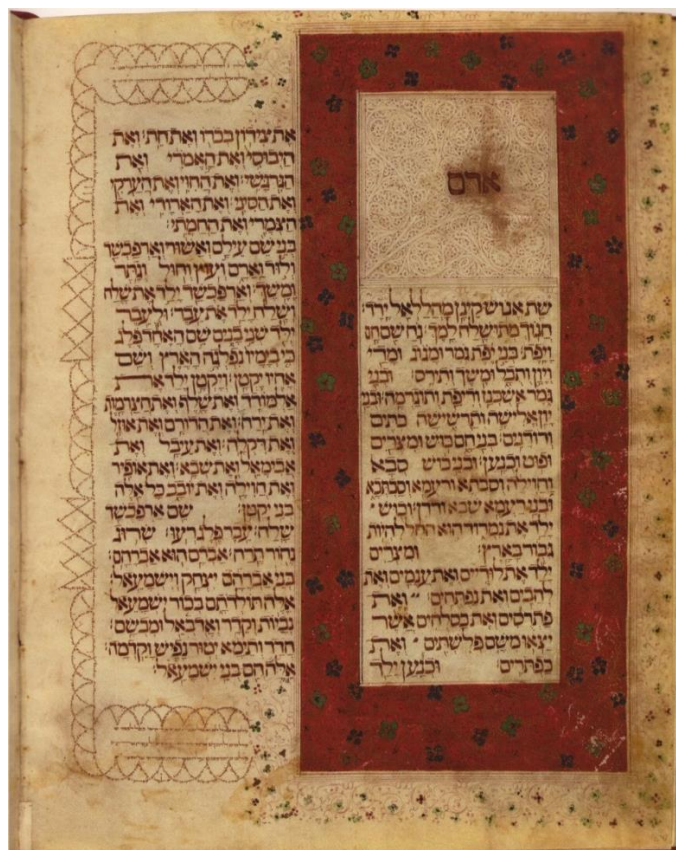 אדם
שת אנוש קינן מהללאל ירד׃
חנוך מתושלח למך׃ נח שם חם
ויפת׃ בני יפת גמר ומגוג ומדי
ויון ותבל ומשך ותירס׃ ובני
גמר אשכנז וריפת ותוגרמה׃ ובני
יון אלישה ותרשישה כתים
ורודנים׃ בני חם כוש ומצרים
ופוט וכנען׃ ובני כוש סבא
וחוילה וסבתא ורעמא וסבתכא
ובני רעמא שבא ודדן׃ וכוש
ילד את נמרוד הוא החל להיות
גבור בארץ׃ ומצרים
ילד את לודיים ואת ענמים ואת
להבים ואת נפתחים׃ ואת
פתרסים ואת כסלחים אשר
יצאו משם פלשתים ואת
כפתרים׃ וכנען ילד
את צידון בכרו ואת חת׃ ואת
היבוסי ואת האמרי ואת
הגרגשי׃ ואת החוי ואת הערקי
ואת הסיני׃ ואת הארודי ואת
הצמרי ואת החמתי׃
בני שם עילם ואשור וארפכשד
ולוד וארם ועוץ וחול וגתר
ומשך׃ וארפכשד ילד את שלח
ושלח ילד את עבר׃ ולעבר
ילד שני בנים שם האחד פלג
כי בימיו נפלגה הארץ ושם
אחיו יקטן׃ ויקטן ילד את
אלמודד ואת שלף ואת חצרמות
ואת ירח׃ ואת הדורם ואת אוזל
ואת דקלה׃ ואת עיבל ואת
אבימאל ואת שבא׃ ואת אופיר
ואת חוילה ואת יובב כל אלה
בני יקטן׃ שם ארפכשד
שלח׃ עבר פלג רעו׃ שרוג
נחור תרח׃ אברם הוא אברהם׃
בני אברהם יצחק וישמעאל׃
אלה תולדתם בכור ישמעאל
נביות וקדר ואדבאל ומבשם׃
חדד ותימא יטור נפיש וקדמה
אלה הם בני ישמעאל׃